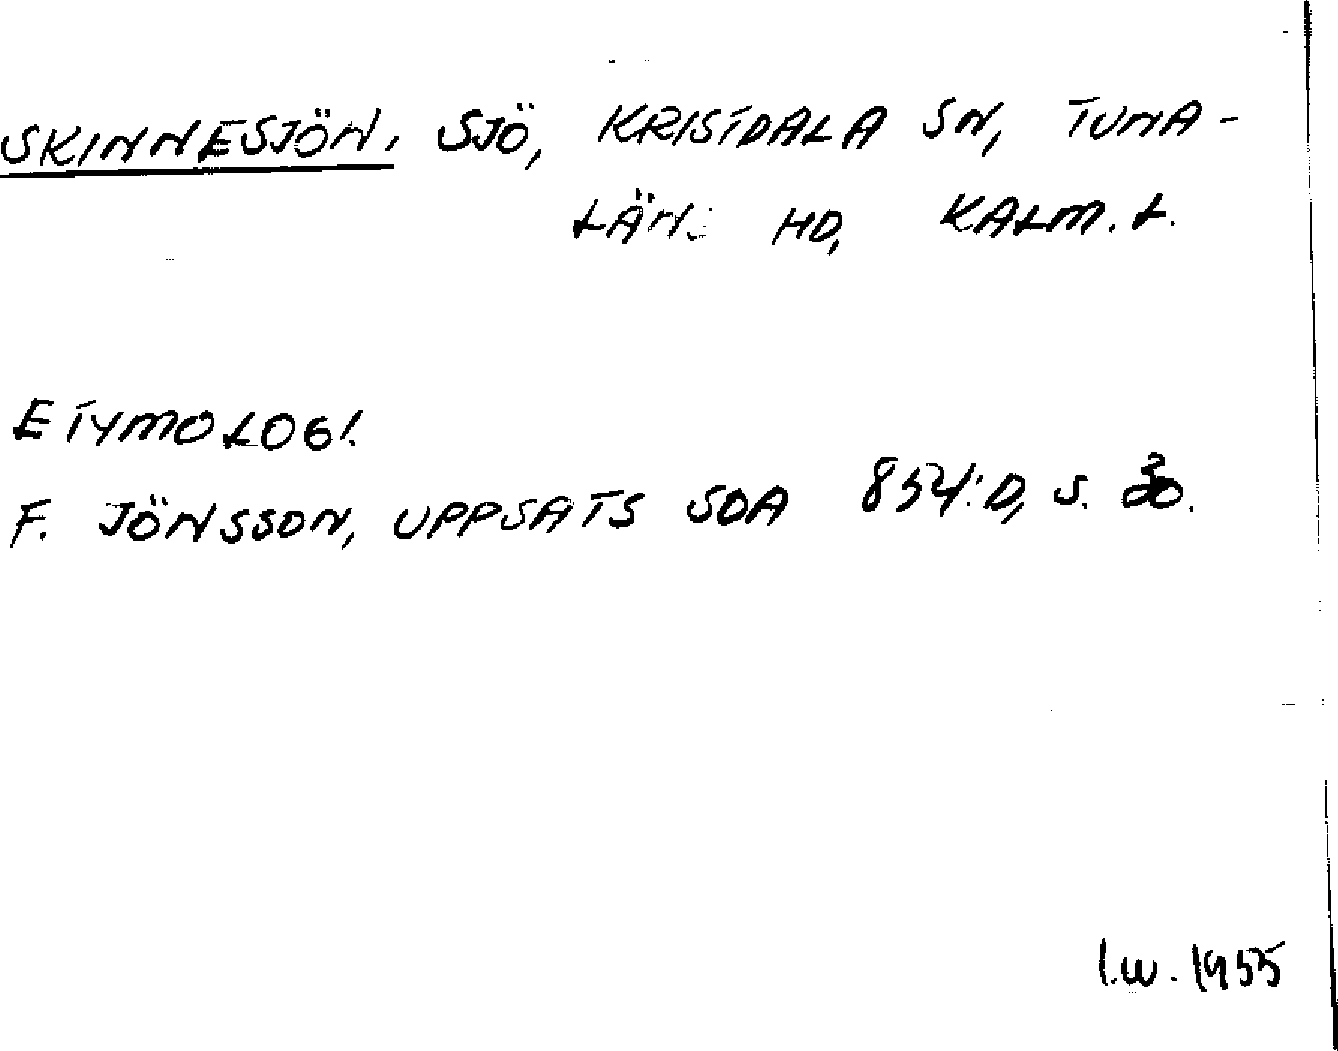 SKINNESJÖN, SJÖ, KRISTDALA SN, TUNA-
LÄN: HD, KALM. L.
ETYMOLOGI.
F. JÖNSSON, UPPSATS SOA 854:D, S.
I.W. 1955